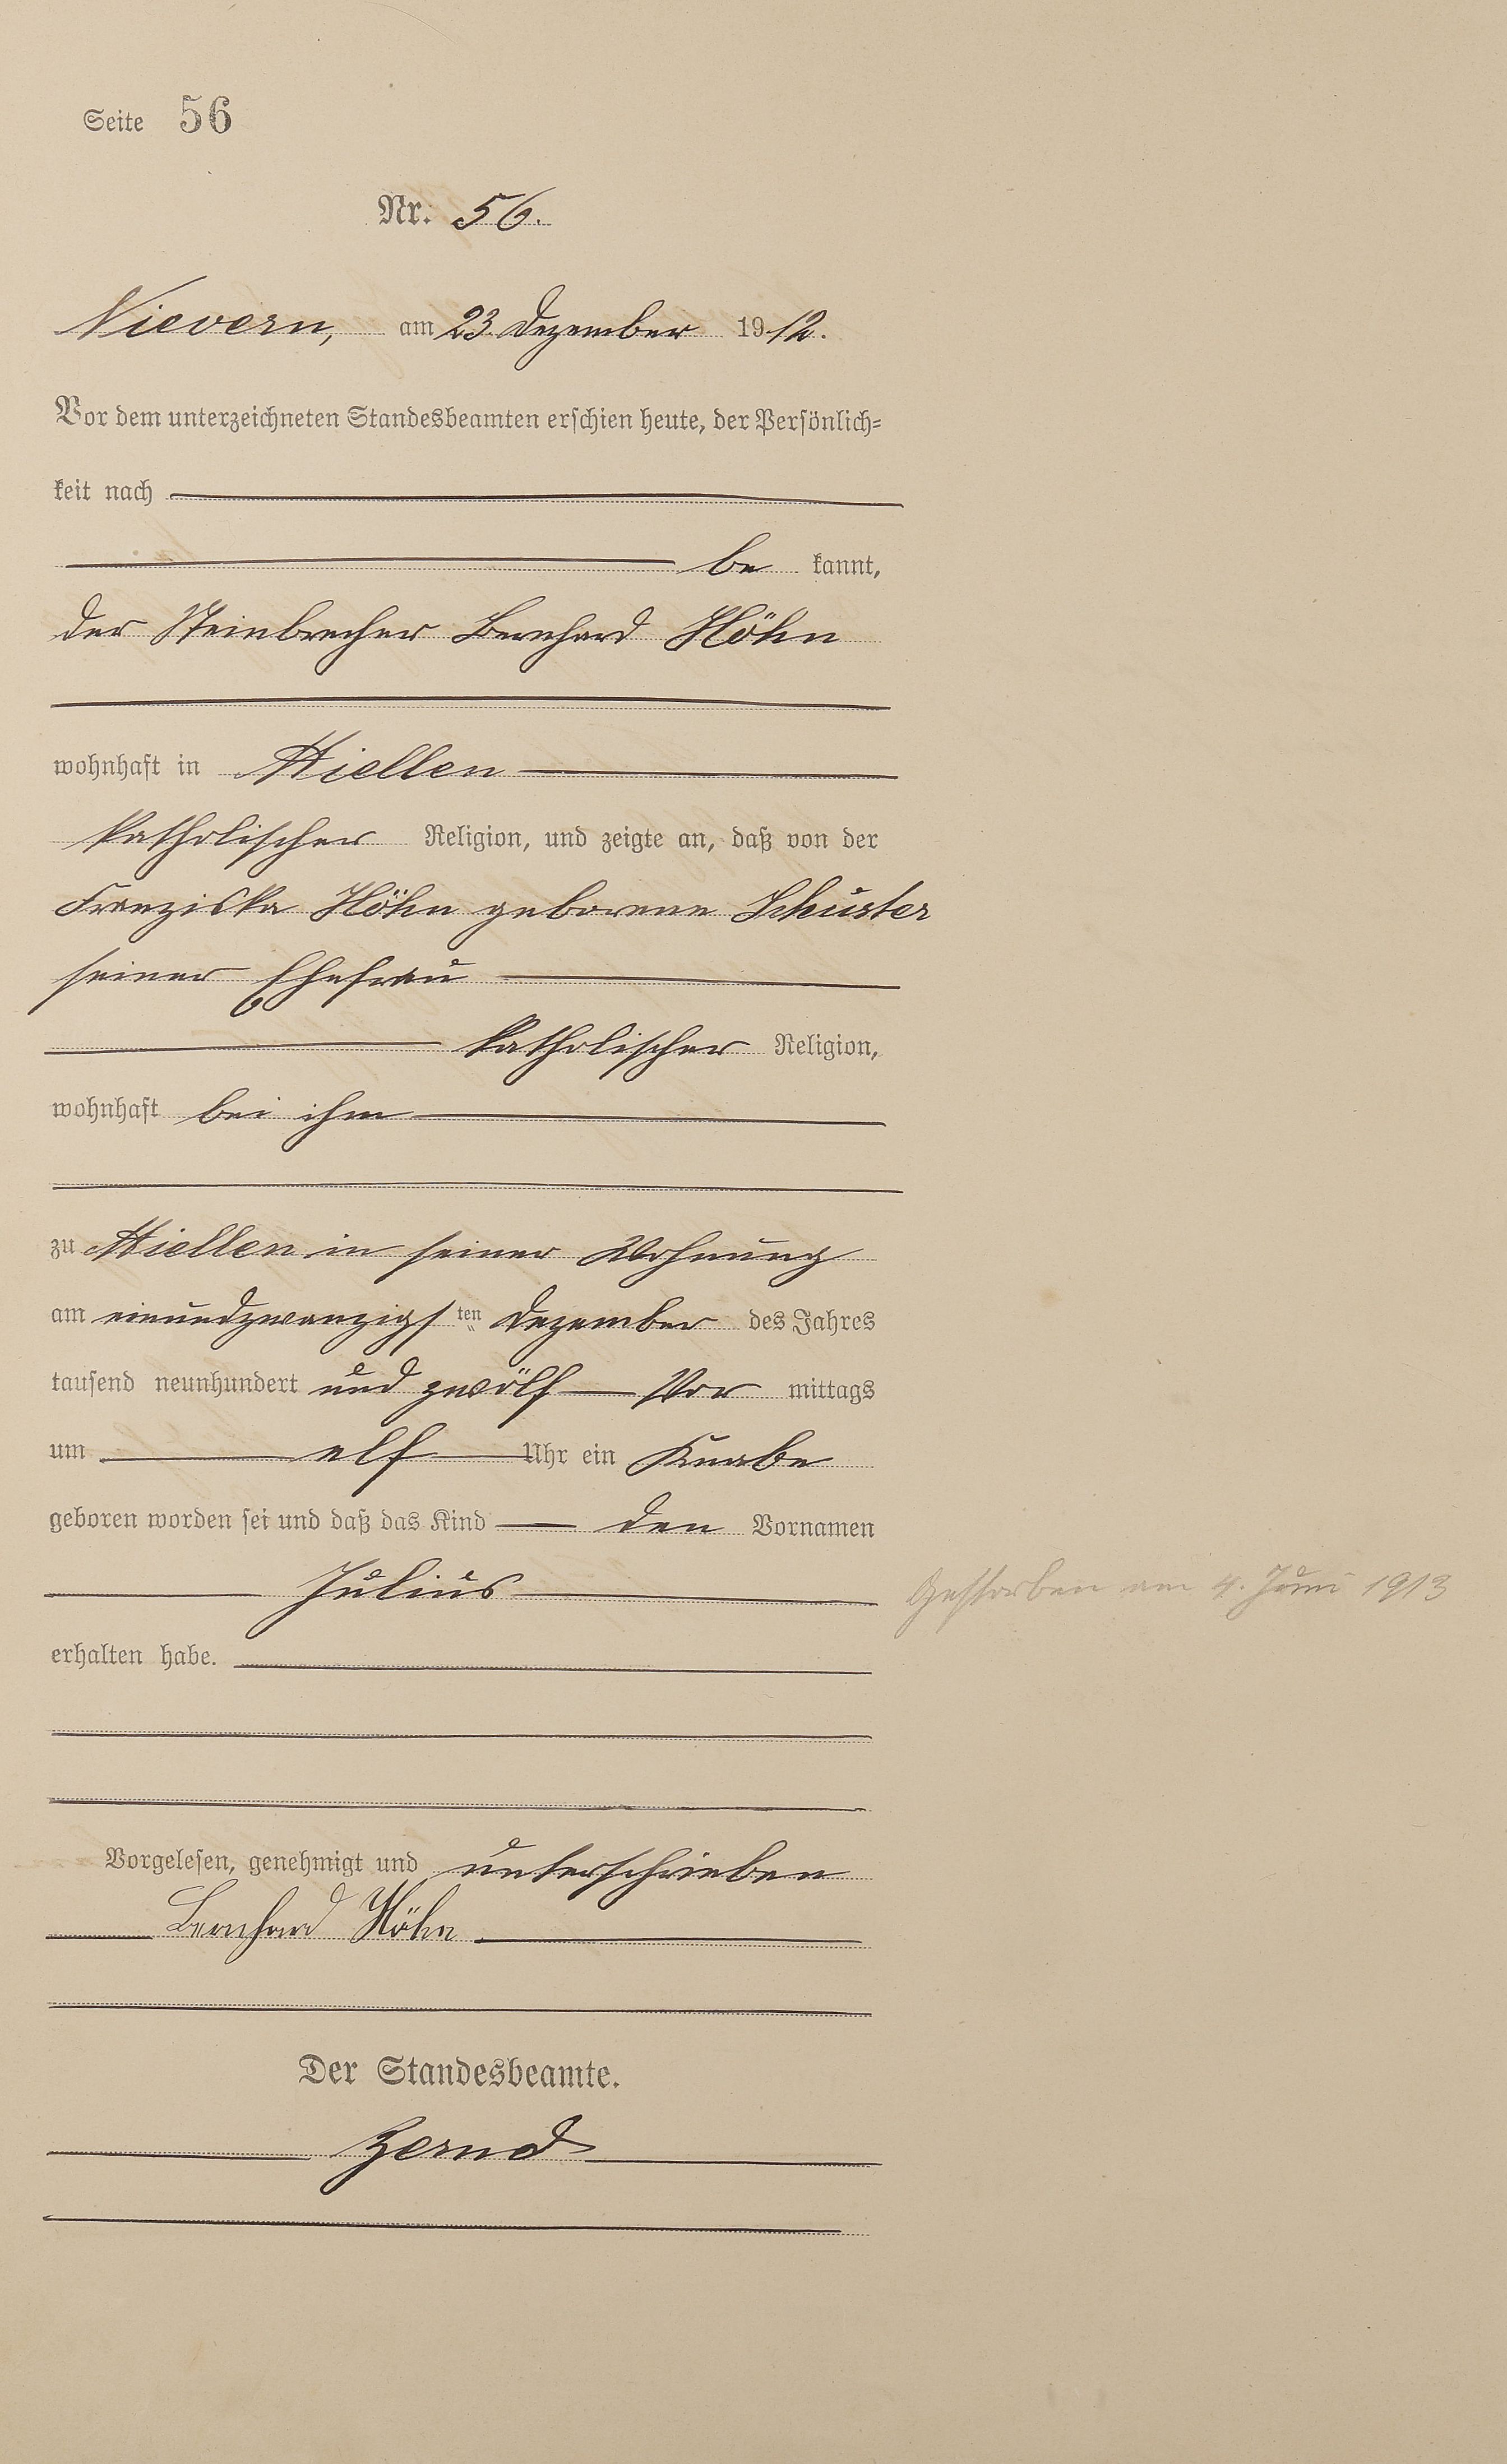 Seite 56
Nr. 56.
Nievern, am 23. Dezember 1912.
Vor dem unterzeichneten Standesbeamten erschien heute, der Persönlich=
keit nach
be kannt,
der Steinbrecher Bernhard Höhn
wohnhaft in Miellen
katholischer Religion, und zeigte an, daß von der
Franziska Höhn geborene Schuster
seiner Ehefrau
katholischer Religion,
wohnhaft bei ihm
zu Miellen in seiner Wohnung
am einundzwanzigsten Dezember des Jahres
tausend neunhundert und zwölf Vor mittags
um elf Uhr ein Knabe
geboren worden sei und daß das Kind den Vornamen
Julius
Gestorben am 4. Juni 1913
erhalten habe.
Vorgelesen, genehmigt und unterschrieben
Bernhard Höhn
Der Standesbeamte.